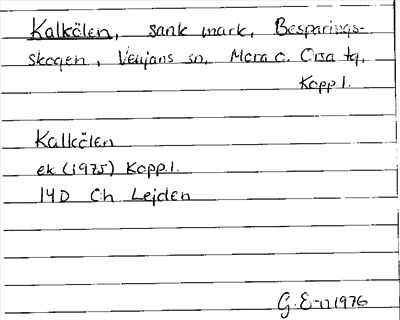 Kalkölen, sank mark, Besparings-
skogen, Venjans sn, Mora o. Orsa tg,
Kopp.l.
Kalkölen
ek (1975) Kopp.l.
14D Ch Lejden
G. E-n 1976